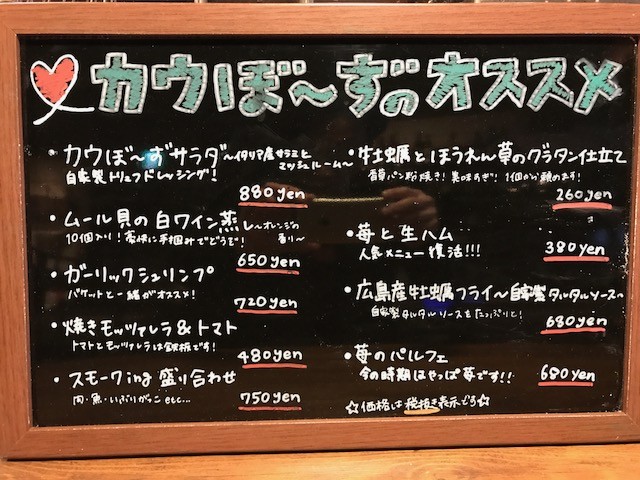 カウぼ〜ずのオススメ
・カウぼ〜ずサラダ〜イタリア産サラミとマッシュルーム〜
自家製トリュフドレッシング!
880yen
・ムール貝の白ワイン蒸し〜オレンジの香り〜
10個入り!豪快に手掴みでどうぞ!
650yen
・ガーリックシュリンプ
バケットと一緒がオススメ!
720yen
・焼きモッツァレラ&トマト
トマトとモッツァレラは鉄板です!
480yen
・スモークing盛り合わせ
肉・魚・いぶりがっこetc...
750yen
・牡蠣とほうれん草のグラタン仕立て
香草パン粉焼き!美味すぎ!1個から頼めます!
260yen
・苺と生ハム
人気メニュー復活!!!
380yen
・広島産牡蠣フライ〜自家製タルタルソース〜
自家製タルタルソースをたっぷりと!
680yen
・苺のパルフェ
今の時期はやっぱ苺です!!
680yen
☆価格は税抜き表示だよ☆